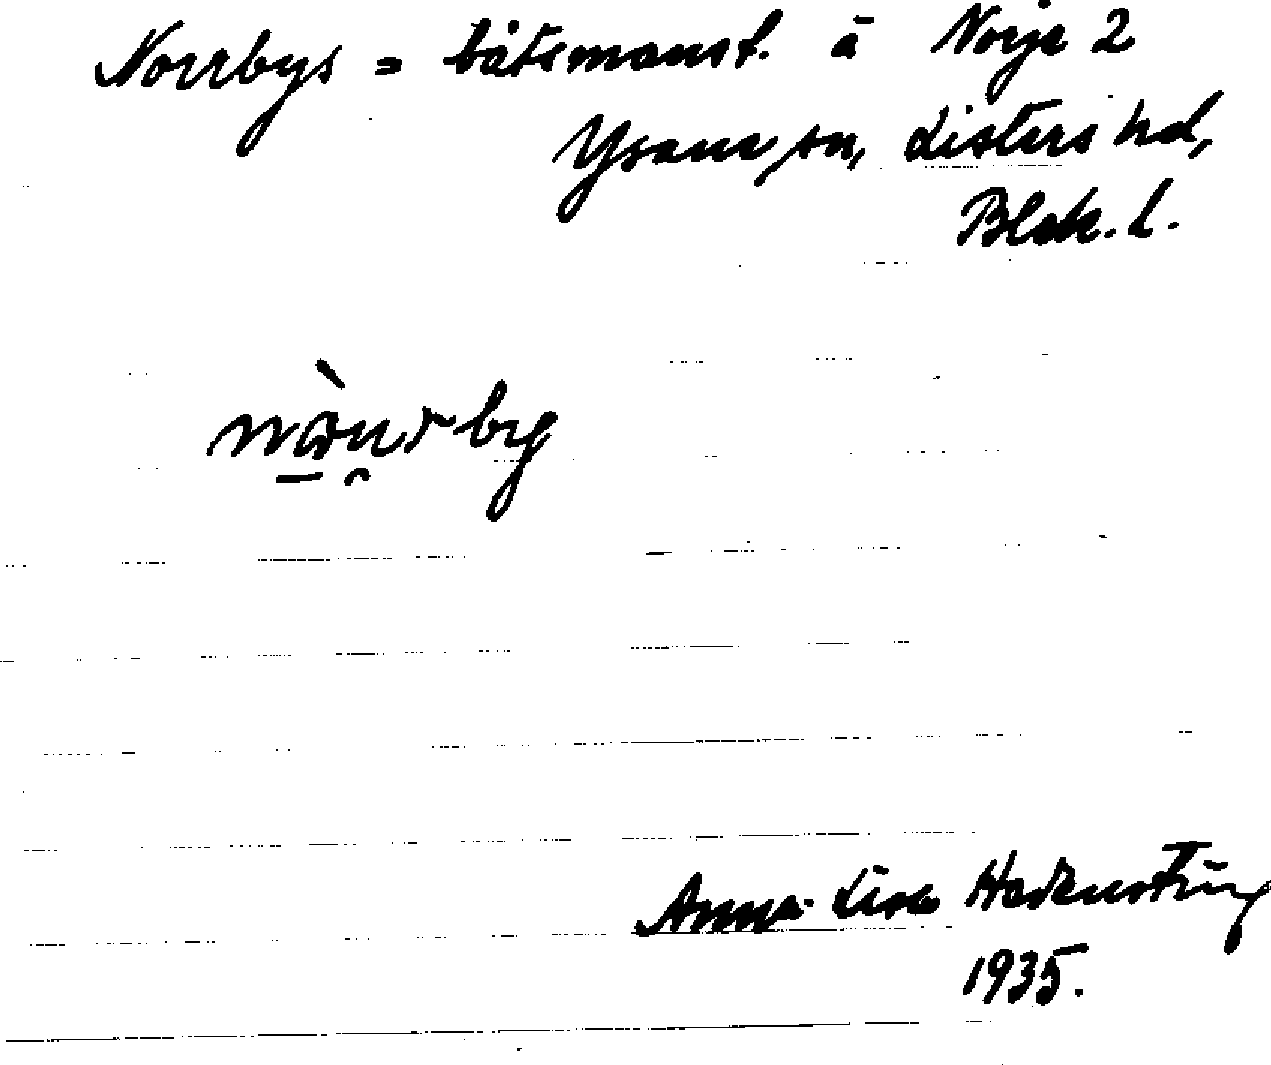 Norrbys = båtsmanst. å Norje 2
Ysane sn, Listers hd,
Blek. l.
Anna-Lisa
1935.